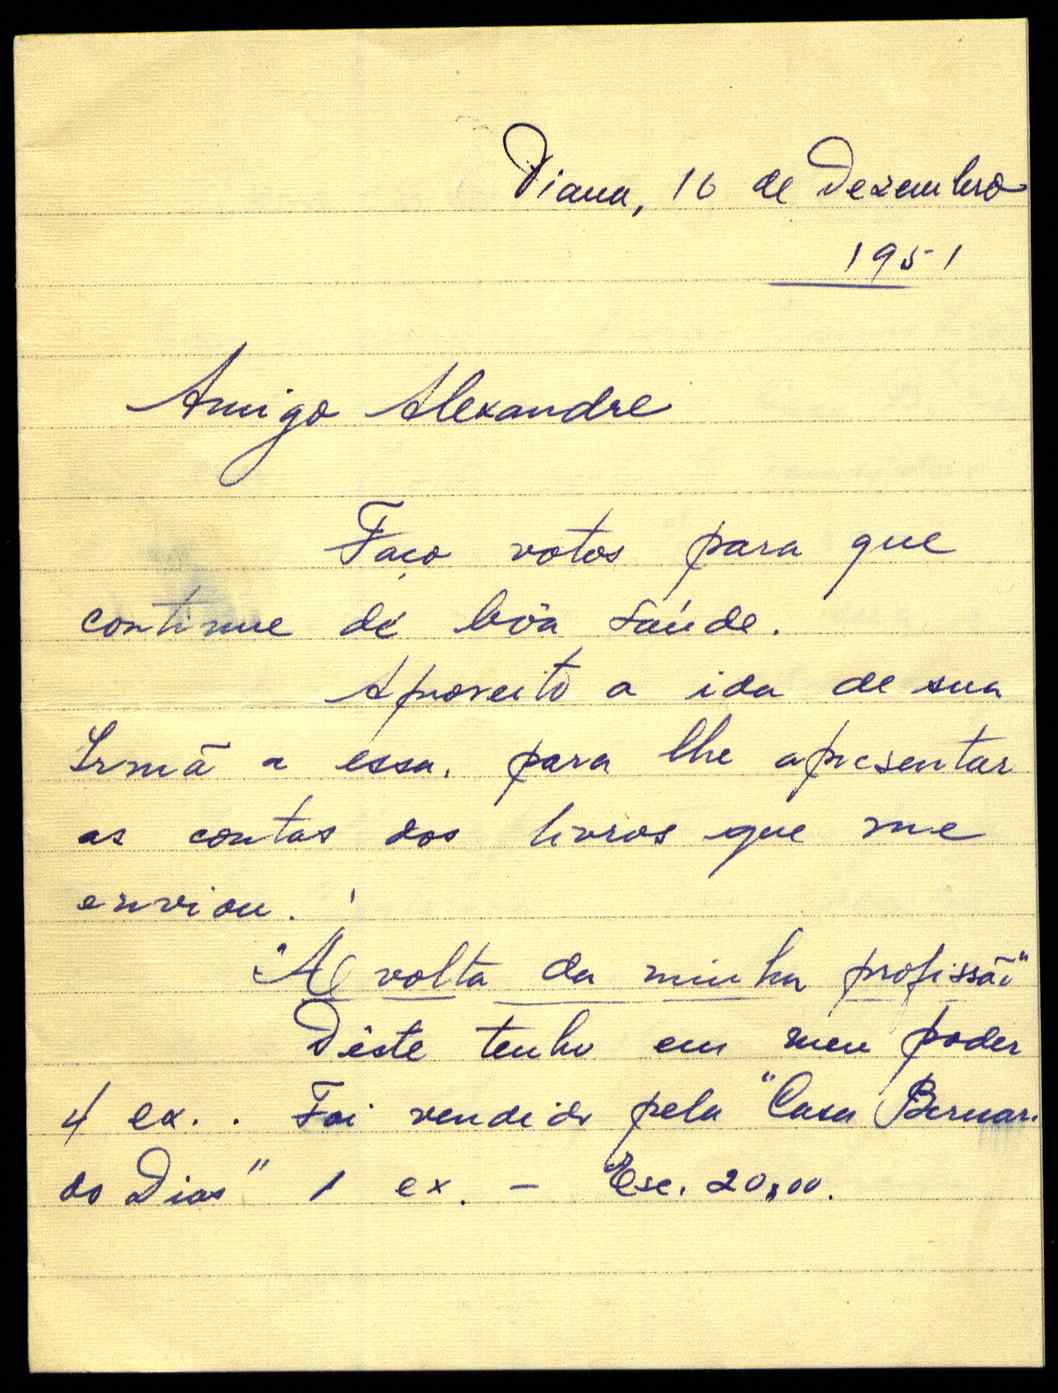 Viana, 16 de Dezembro
1951
Amigo Alexandre
Faço votos para que
continue de bôa saúde.
Aproveito a ida de sua
Irmã a essa, para lhe apresentar
as contas dos livros que me
enviou.
"Á volta da minha profissão"
Dêste tenho em meu poder
4 ex.. Foi vendido pela "Casa Bernar-
do Dias" 1 ex. - Esc. 20,00.